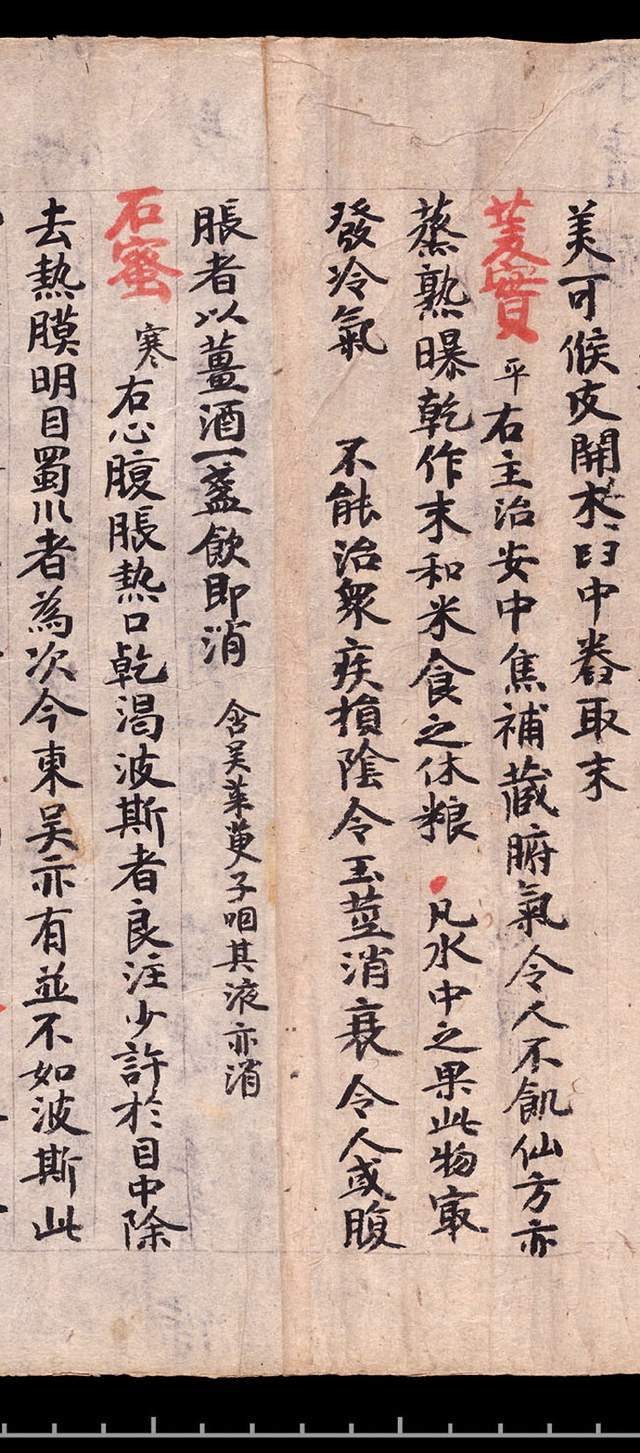 美可候皮開末臼中舂取末
菱實平右主治安中焦補藏腑氣令人不飢仙方亦
蒸熟曝乾作末和米食之休粮凡水中之果此物寂
發冷氣不能治衆疾損陰令玉莖消衰令人或腹
脹者以薑酒一盞飲即消含吴茱萸子咽其液亦消
石蜜寒右心腹脹熱口乾渴波斯者良注少許於目中除
去熱膜明目蜀川者為次今東吴亦有並不如波斯此